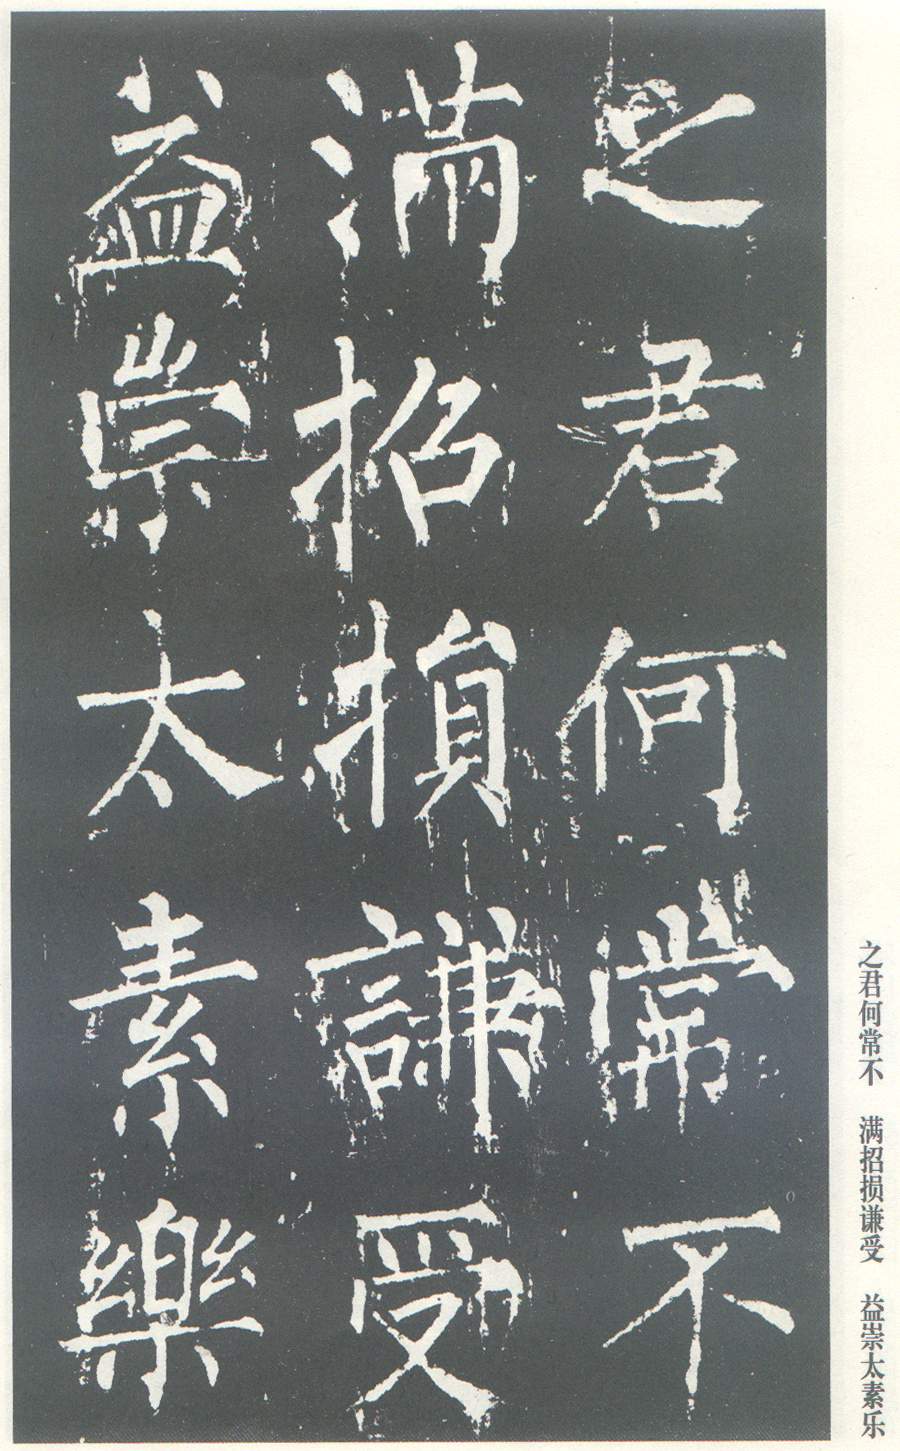 之君何常不
滿招損謙受
益崇太素樂
之君何常不 满招损谦受 益崇太素乐